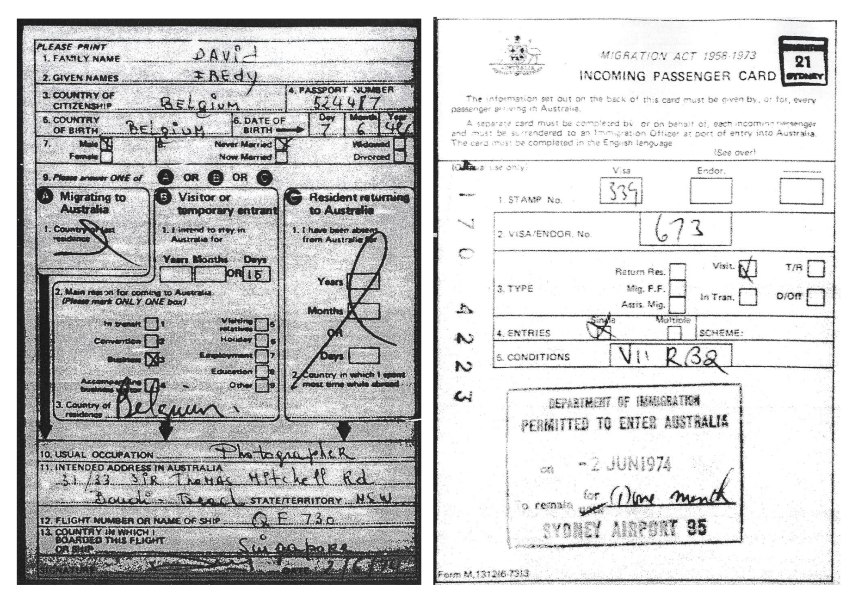 PLEASE PRINT
1. FAMILY NAME DAVID
2. GIVEN NAMES FREDY
3. COUNTRY OF CITIZENSHIP BELGIUM
4. PASSPORT NUMBER 524487
5. COUNTRY OF BIRTH BELGIUM
6. DATE OF BIRTH Day 7 Month 6 Year 46
7. Male Never Married Widowed
Female Now Married Divorced
9. Please answer ONE of A OR B OR C
A Migrating to Australia
1. Country of last residence
B Visitor or temporary entrant
1. I intend to stay in Australia for
Years Months Days
OR 15
2. Main reason for coming to Australia
(Please mark ONLY ONE box)
In transit 1
Convention 2
Business 3
Accompanying business 4
Visiting relatives 5
Holiday 6
Employment 7
Education 8
Other 9
3. Country of residence Belgium.
C Resident returning to Australia
1. I have been absent from Australia for
Years
Months
OR
Days
2. Country in which I spent most time while abroad
10. USUAL OCCUPATION Photographer
11. INTENDED ADDRESS IN AUSTRALIA
31/33 SIR Thomas Mitchell Rd
Bondi - Beach STATE/TERRITORY NSW
12. FLIGHT NUMBER OR NAME OF SHIP QF 730
13. COUNTRY IN WHICH I BOARDED THIS FLIGHT OR SHIP Singapore
SIGNATURE DATE 2/6/74
AUSTRALIA
MIGRATION ACT 1958-1973
INCOMING PASSENGER CARD
IMMIGRATION
21
SYDNEY
The information set out on the back of this card must be given by, or for, every
passenger arriving in Australia.
A separate card must be completed by or on behalf of, each incoming passenger
and must be surrendered to an Immigration Officer at port of entry into Australia.
The card must be completed in the English language
(See over)
(Official use only)
Visa Endor.
1. STAMP No. 339
2. VISA/ENDOR. No. 673
3. TYPE
Return Res. Visit. T/R
Mig. F.F.
Assis. Mig. In Tran. D/Off
Single Multiple
4. ENTRIES SCHEME:
5. CONDITIONS VII R32
170 4223
DEPARTMENT OF IMMIGRATION
PERMITTED TO ENTER AUSTRALIA
on -2 JUN 1974
To remain for until (1) one month
SYDNEY AIRPORT 35
Form M.1312(6-73)3